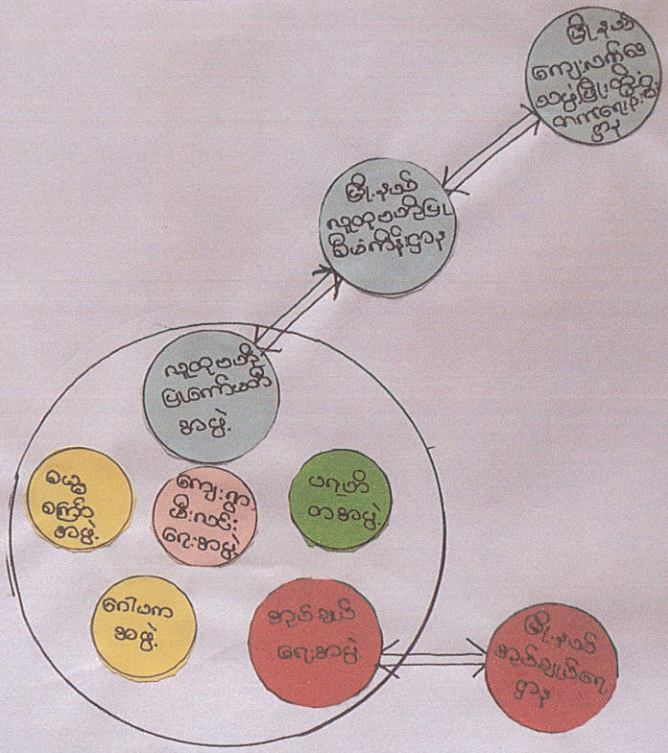 မြို့နယ်
ကျေးလက်ဒေ
သဖွံ့ဖြိုးတိုး
ဌာန
မြို့နယ်
လူထုဗဟိုပြု
စီမံကိန်းဌာန
လူထုဗဟို
ပြုကော်မတီ
အဖွဲ့
အဖွဲ့
ကျေးရွာ
မီးလင်း
ရေးအဖွဲ့
ပရဟိ
တအဖွဲ့
ဂေါပက
အဖွဲ့
အုပ်ချုပ်
ရေးအဖွဲ့
မြို့နယ်
အုပ်ချုပ်ရေး
ဌာန